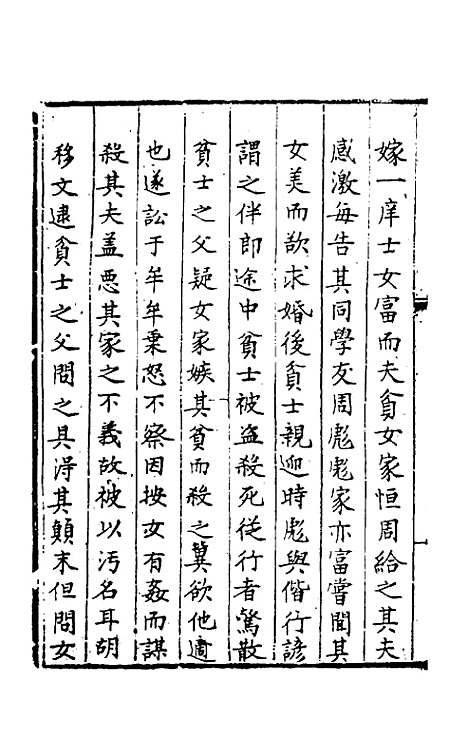 嫁一庠士女富而夫貧女家恒周給之其夫
感激每告其同學友周彪彪家亦富嘗聞其
女美而欲求婚後貧士親迎時彪與偕行諺
謂之伴郎途中貧士被盗殺死従行者驚散
貧士之父疑女家嫉其貧而殺之冀欲他適
也遂訟于年年秉怒不察因按女有姦而謀
殺其夫盖悪其家之不義故被以汚名耳胡
移文逮貧士之父問之具得其顛末但問女